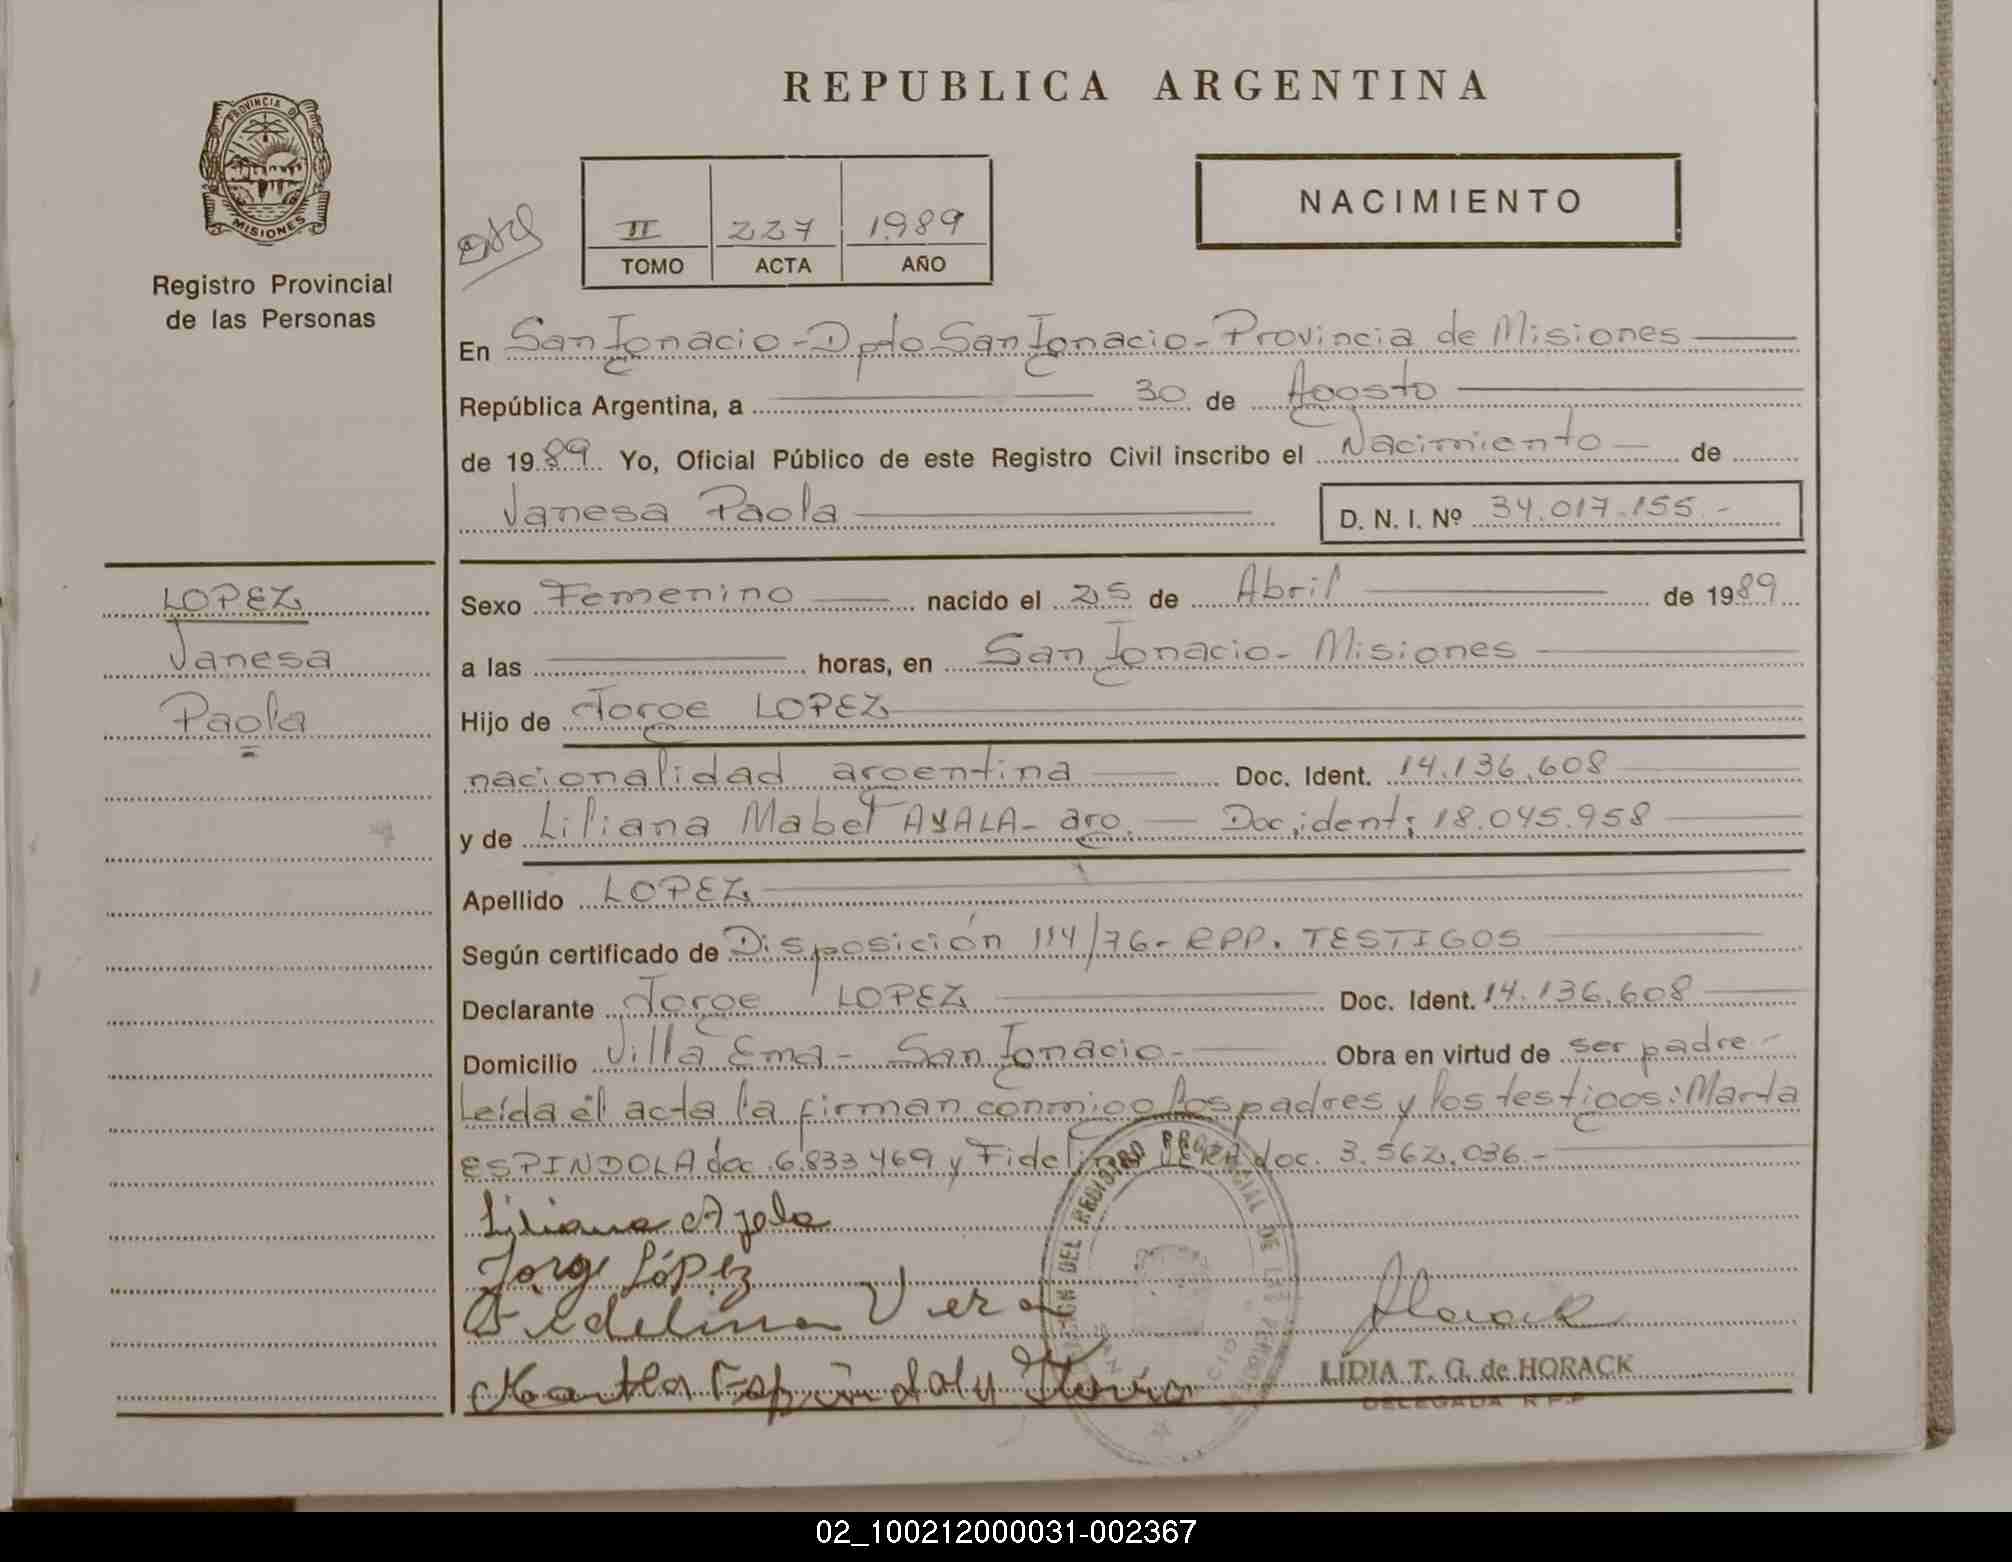 REPUBLICA ARGENTINA
PROVINCIA DE
MISIONES
Registro Provincial
de las Personas
NACIMIENTO
II 227 1989
TOMO ACTA AÑO
En San Ignacio - Dpto San Ignacio - Provincia de Misiones
República Argentina, a 30 de Agosto
de 1989 Yo, Oficial Público de este Registro Civil inscribo el Nacimiento de
Vanesa Paola D. N. I. Nº 34.017.155.-
LOPEZ
Vanesa
Paola
Sexo Femenino nacido el 25 de Abril de 1989
a las horas, en San Ignacio - Misiones
Hijo de Jorge LOPEZ
nacionalidad argentina Doc. Ident. 14.136.608
y de Liliana Mabel AYALA - arg. Doc. ident: 18.045.958
Apellido LOPEZ
Según certificado de Disposición 114/76 - RPP. TESTIGOS
Declarante Jorge LOPEZ Doc. Ident. 14.136.608
Domicilio Villa Ema - San Ignacio - Obra en virtud de ser padre -
Leída el acta la firman conmigo los padres y los testigos: Marta
ESPINDOLA doc. 6.833.469 y Fidelina VERA doc. 3.562.036.-
Liliana Ayala
Jorge López
Fidelina Vera
LIDIA T. G. de HORACK
DELEGADA R.P.P
02_100212000031-002367